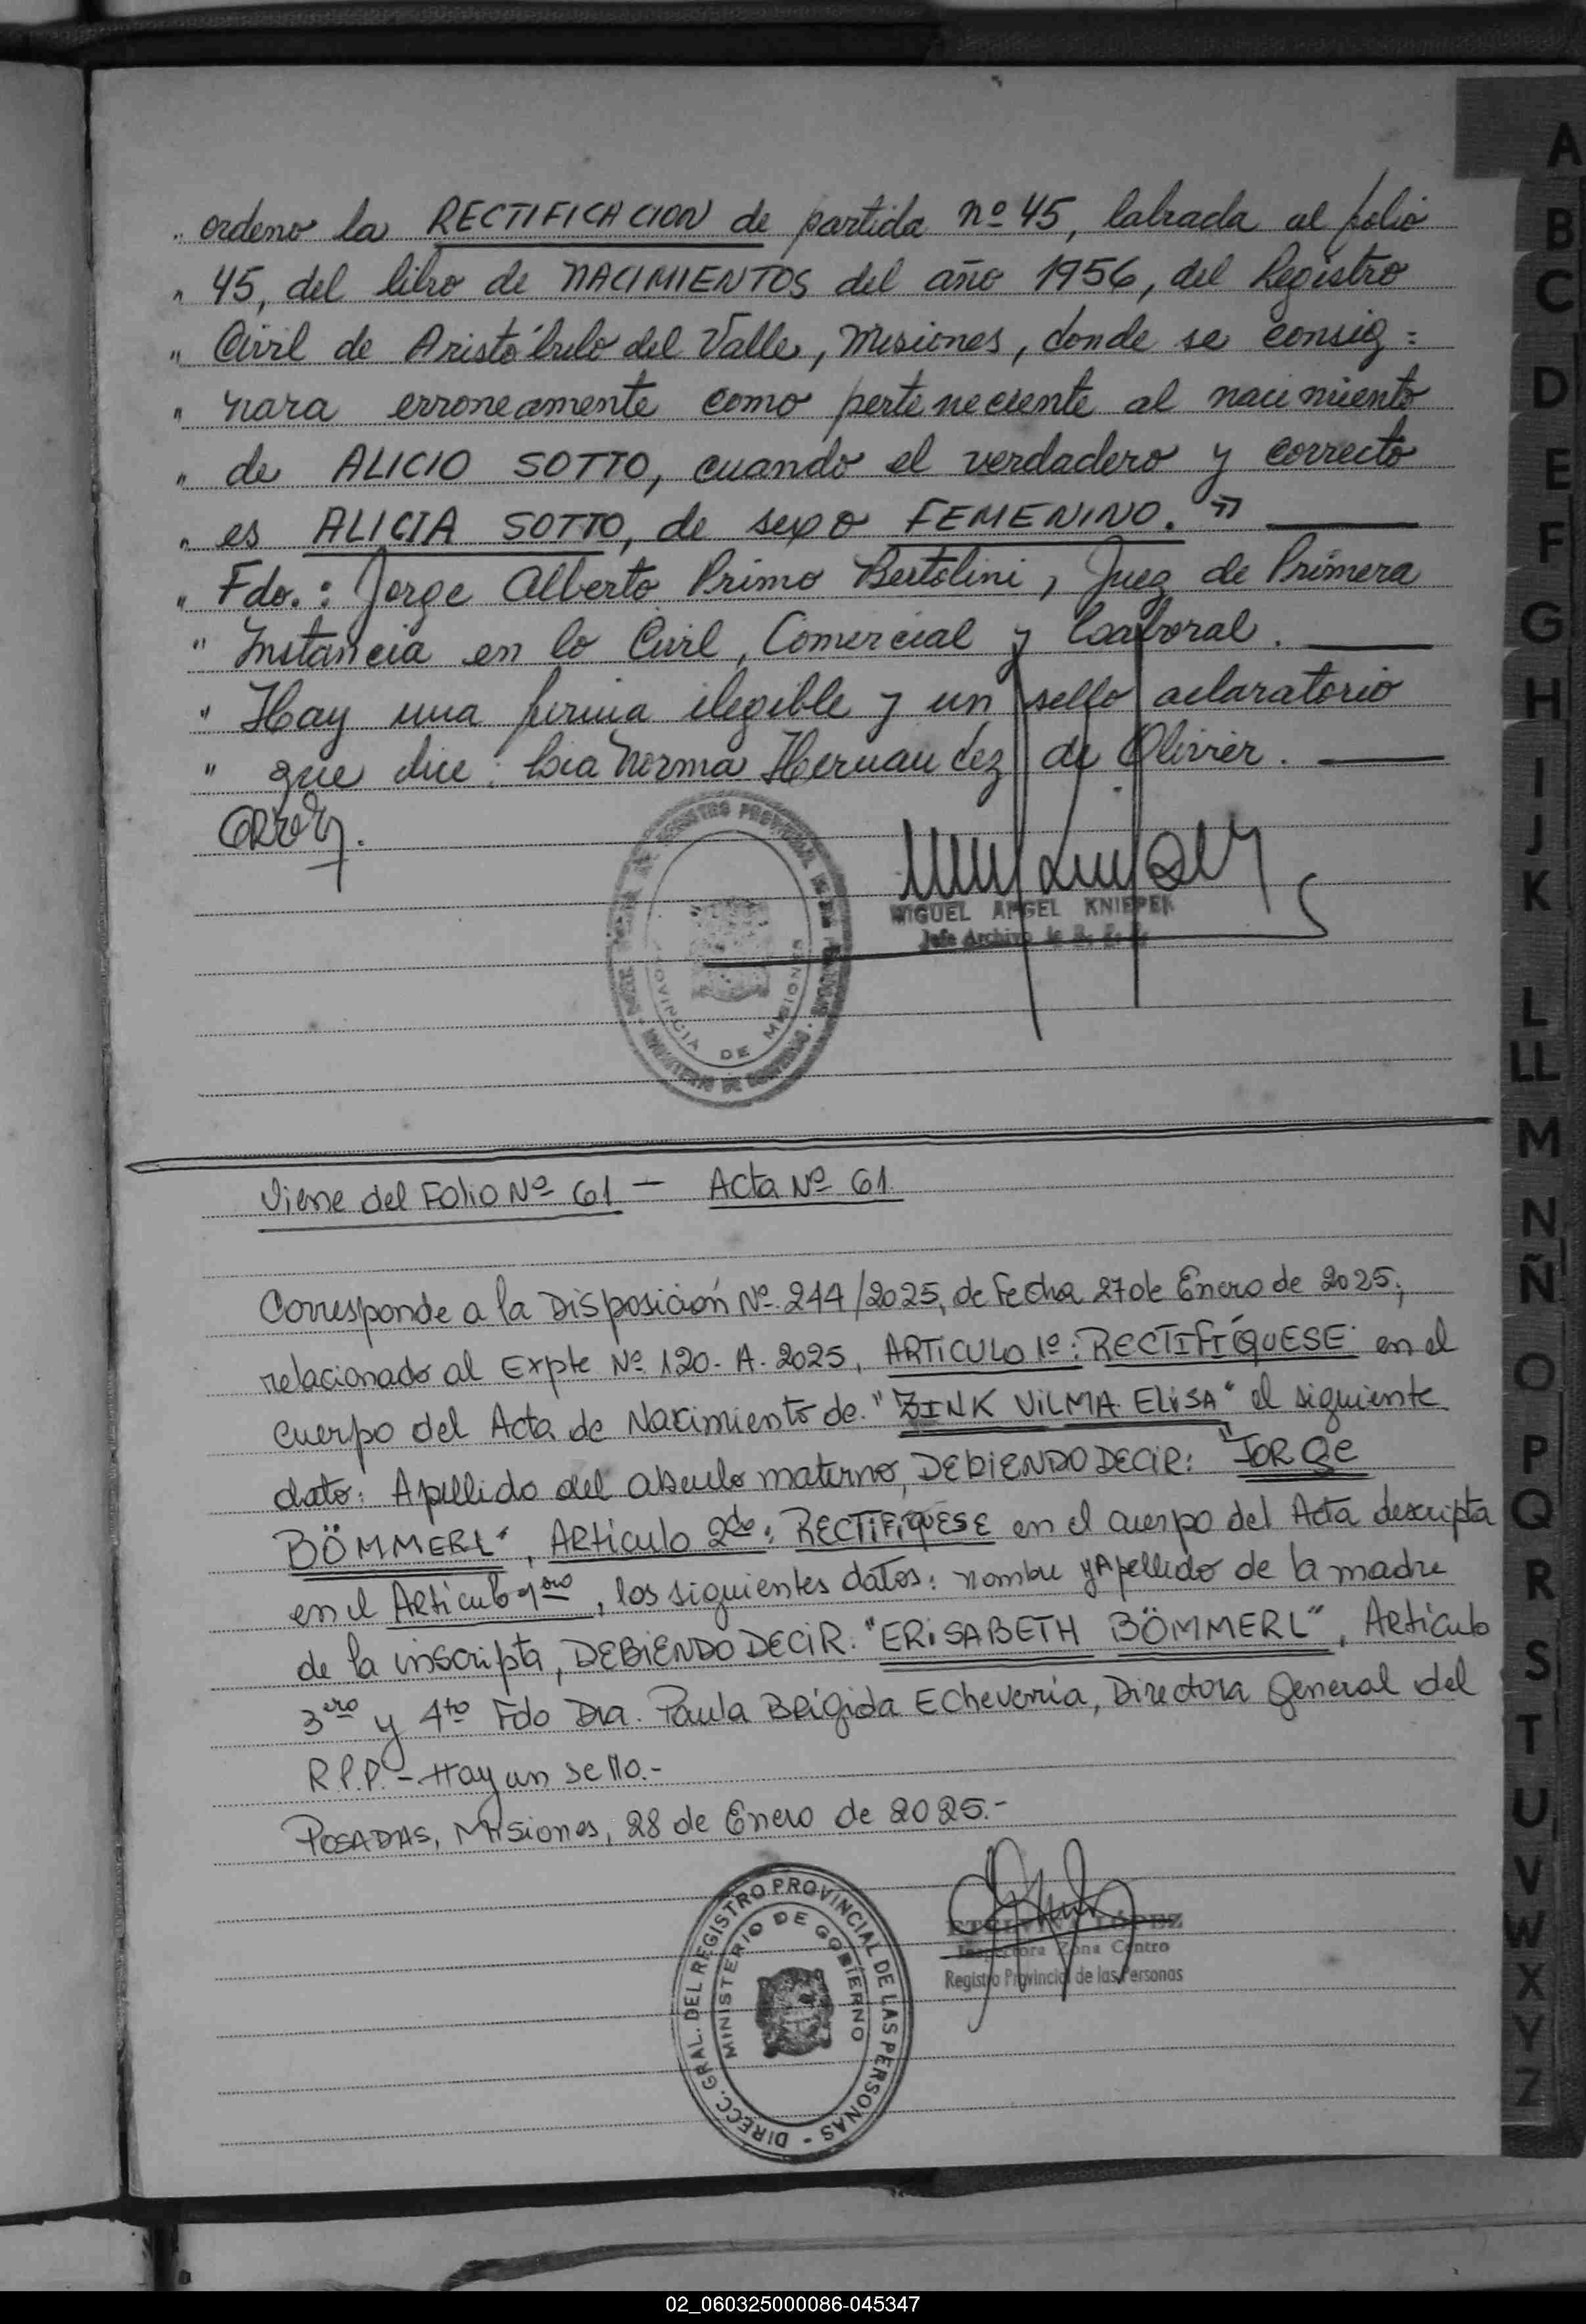 " ordeno la RECTIFICACION de partida nº 45, labrada al folio
" 45, del libro de NACIMIENTOS del año 1956, del Registro
" Civil de Aristóbulo del Valle, Misiones, donde se consig=
" nara erroneamente como perteneciente al nacimiento
" de ALICIO SOTTO, cuando el verdadero y correcto
" es ALICIA SOTTO, de sexo FEMENINO."
" Fdo.: Jorge Alberto Primo Bertolini, Juez de Primera
" Instancia en lo Civil, Comercial y Laboral.
" Hay una firma ilegible y un sello aclaratorio
" que dice: Lia Norma Hernandez de Olivier.
MIGUEL ANGEL KNIEPEK
Jefe Archivo
PROVINCIA DE MISIONES
Viene del Folio Nº 61 — Acta Nº 61
Corresponde a la Disposición Nº 244/2025, de Fecha 27 de Enero de 2025;
relacionado al Expte Nº 120-A-2025, ARTICULO 1º: RECTIFÍQUESE en el
cuerpo del Acta de Nacimiento de "ZINK VILMA ELISA" el siguiente
dato: Apellido del abuelo materno, DEBIENDO DECIR: "JORGE
BÖMMERL", Artículo 2do: RECTIFIQUESE en el cuerpo del Acta descripta
en el Artículo 1ero, los siguientes datos: nombre y Apellido de la madre
de la inscripta, DEBIENDO DECIR: "ERISABETH BÖMMERL", Artículo
3ero y 4to Fdo Dra. Paula Brígida Echeverría, Directora General del
R.P.P. - Hay un sello.-
POSADAS, Misiones, 28 de Enero de 2025.-
DIRECC. GRAL. DEL REGISTRO PROVINCIAL DE LAS PERSONAS -
MINISTERIO DE GOBIERNO
ETELVINA LÓPEZ
Inspectora Zona Centro
Registro Provincial de las Personas
A
B
C
D
E
F
G
H
I
J
K
L
LL
M
N
Ñ
O
P
Q
R
S
T
U
V
W
X
Y
Z
02_060325000086-045347